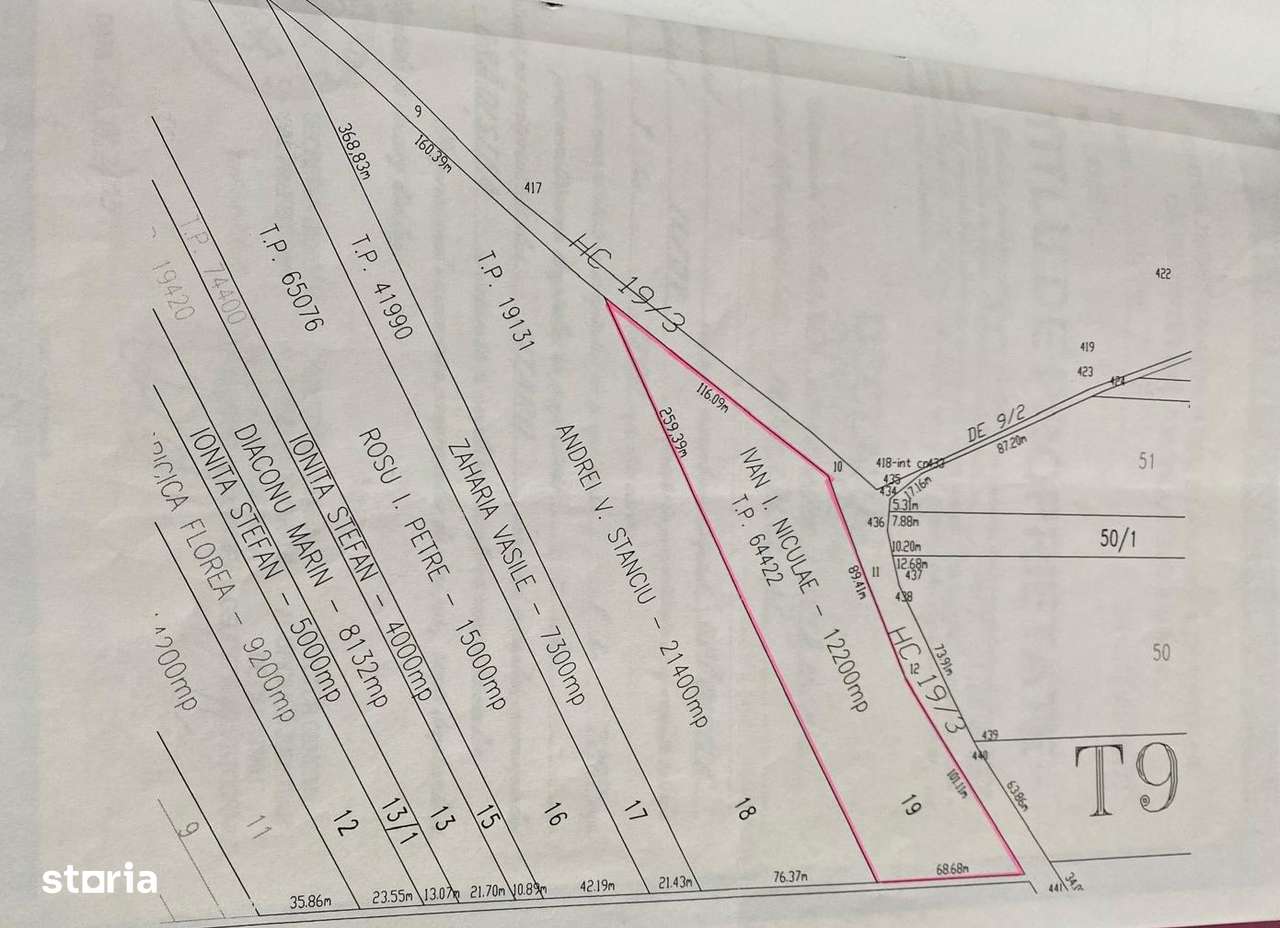 9
160.39m
368.83m
417
HC 19/3
422
419
423
424
DE 9/2
87.20m
T.P. 74400
19420
T.P. 65076
T.P. 41990
T.P. 19131
116.09m
259.39m
10
418-int
435
434
17.16m
5.31m
436
7.88m
10.20m
12.68m
437
438
51
50/1
50
FLOREA - 9200mp
IONITA STEFAN - 5000mp
DIACONU MARIN - 8132mp
IONITA STEFAN - 4000mp
ROSU I. PETRE - 15000mp
ZAHARIA VASILE - 7300mp
ANDREI V. STANCIU - 21400mp
IVAN I. NICULAE - 12200mp
T.P. 64422
89.41m
11
12
HC 19/3
73.91m
439
440
101.11m
63.86m
T9
9
11
12
13/1
13
15
16
17
18
19
35.86m
23.55m
13.07m
21.70m
10.89m
42.19m
21.43m
76.37m
68.68m
441
storia